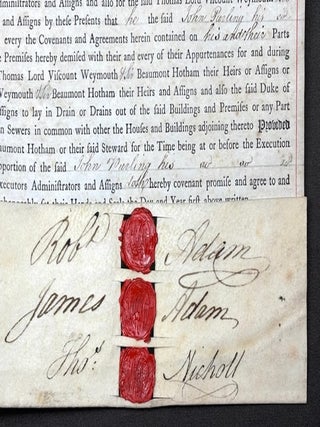 dministrators and Assigns and also for the said Thomas Lord Viscount Weymouth
and Assigns by these Presents that he the said John Purling his
every the Covenants and Agreements herein contained on his and their Parts
he Premises hereby demised with their and every of their Appurtenances for and during
Thomas Lord Viscount Weymouth Beaumont Hotham their Heirs or Assigns or
Weymouth Beaumont Hotham their Heirs and Assigns and also the said Duke of
Assigns to lay in Drain or Drains out of the said Buildings and Premises or any Part
n Sewers in common with other the Houses and Buildings adjoining thereto Provided
eaumont Hotham or their said Steward for the Time being at or before the Execution
oportion of the said John Purling his
xecutors Administrators and Assigns doth hereby covenant promise and agree to and
their Hands and Seals the Day and Year first above written
Robt Adam
James Adam
Thos. Nicholl